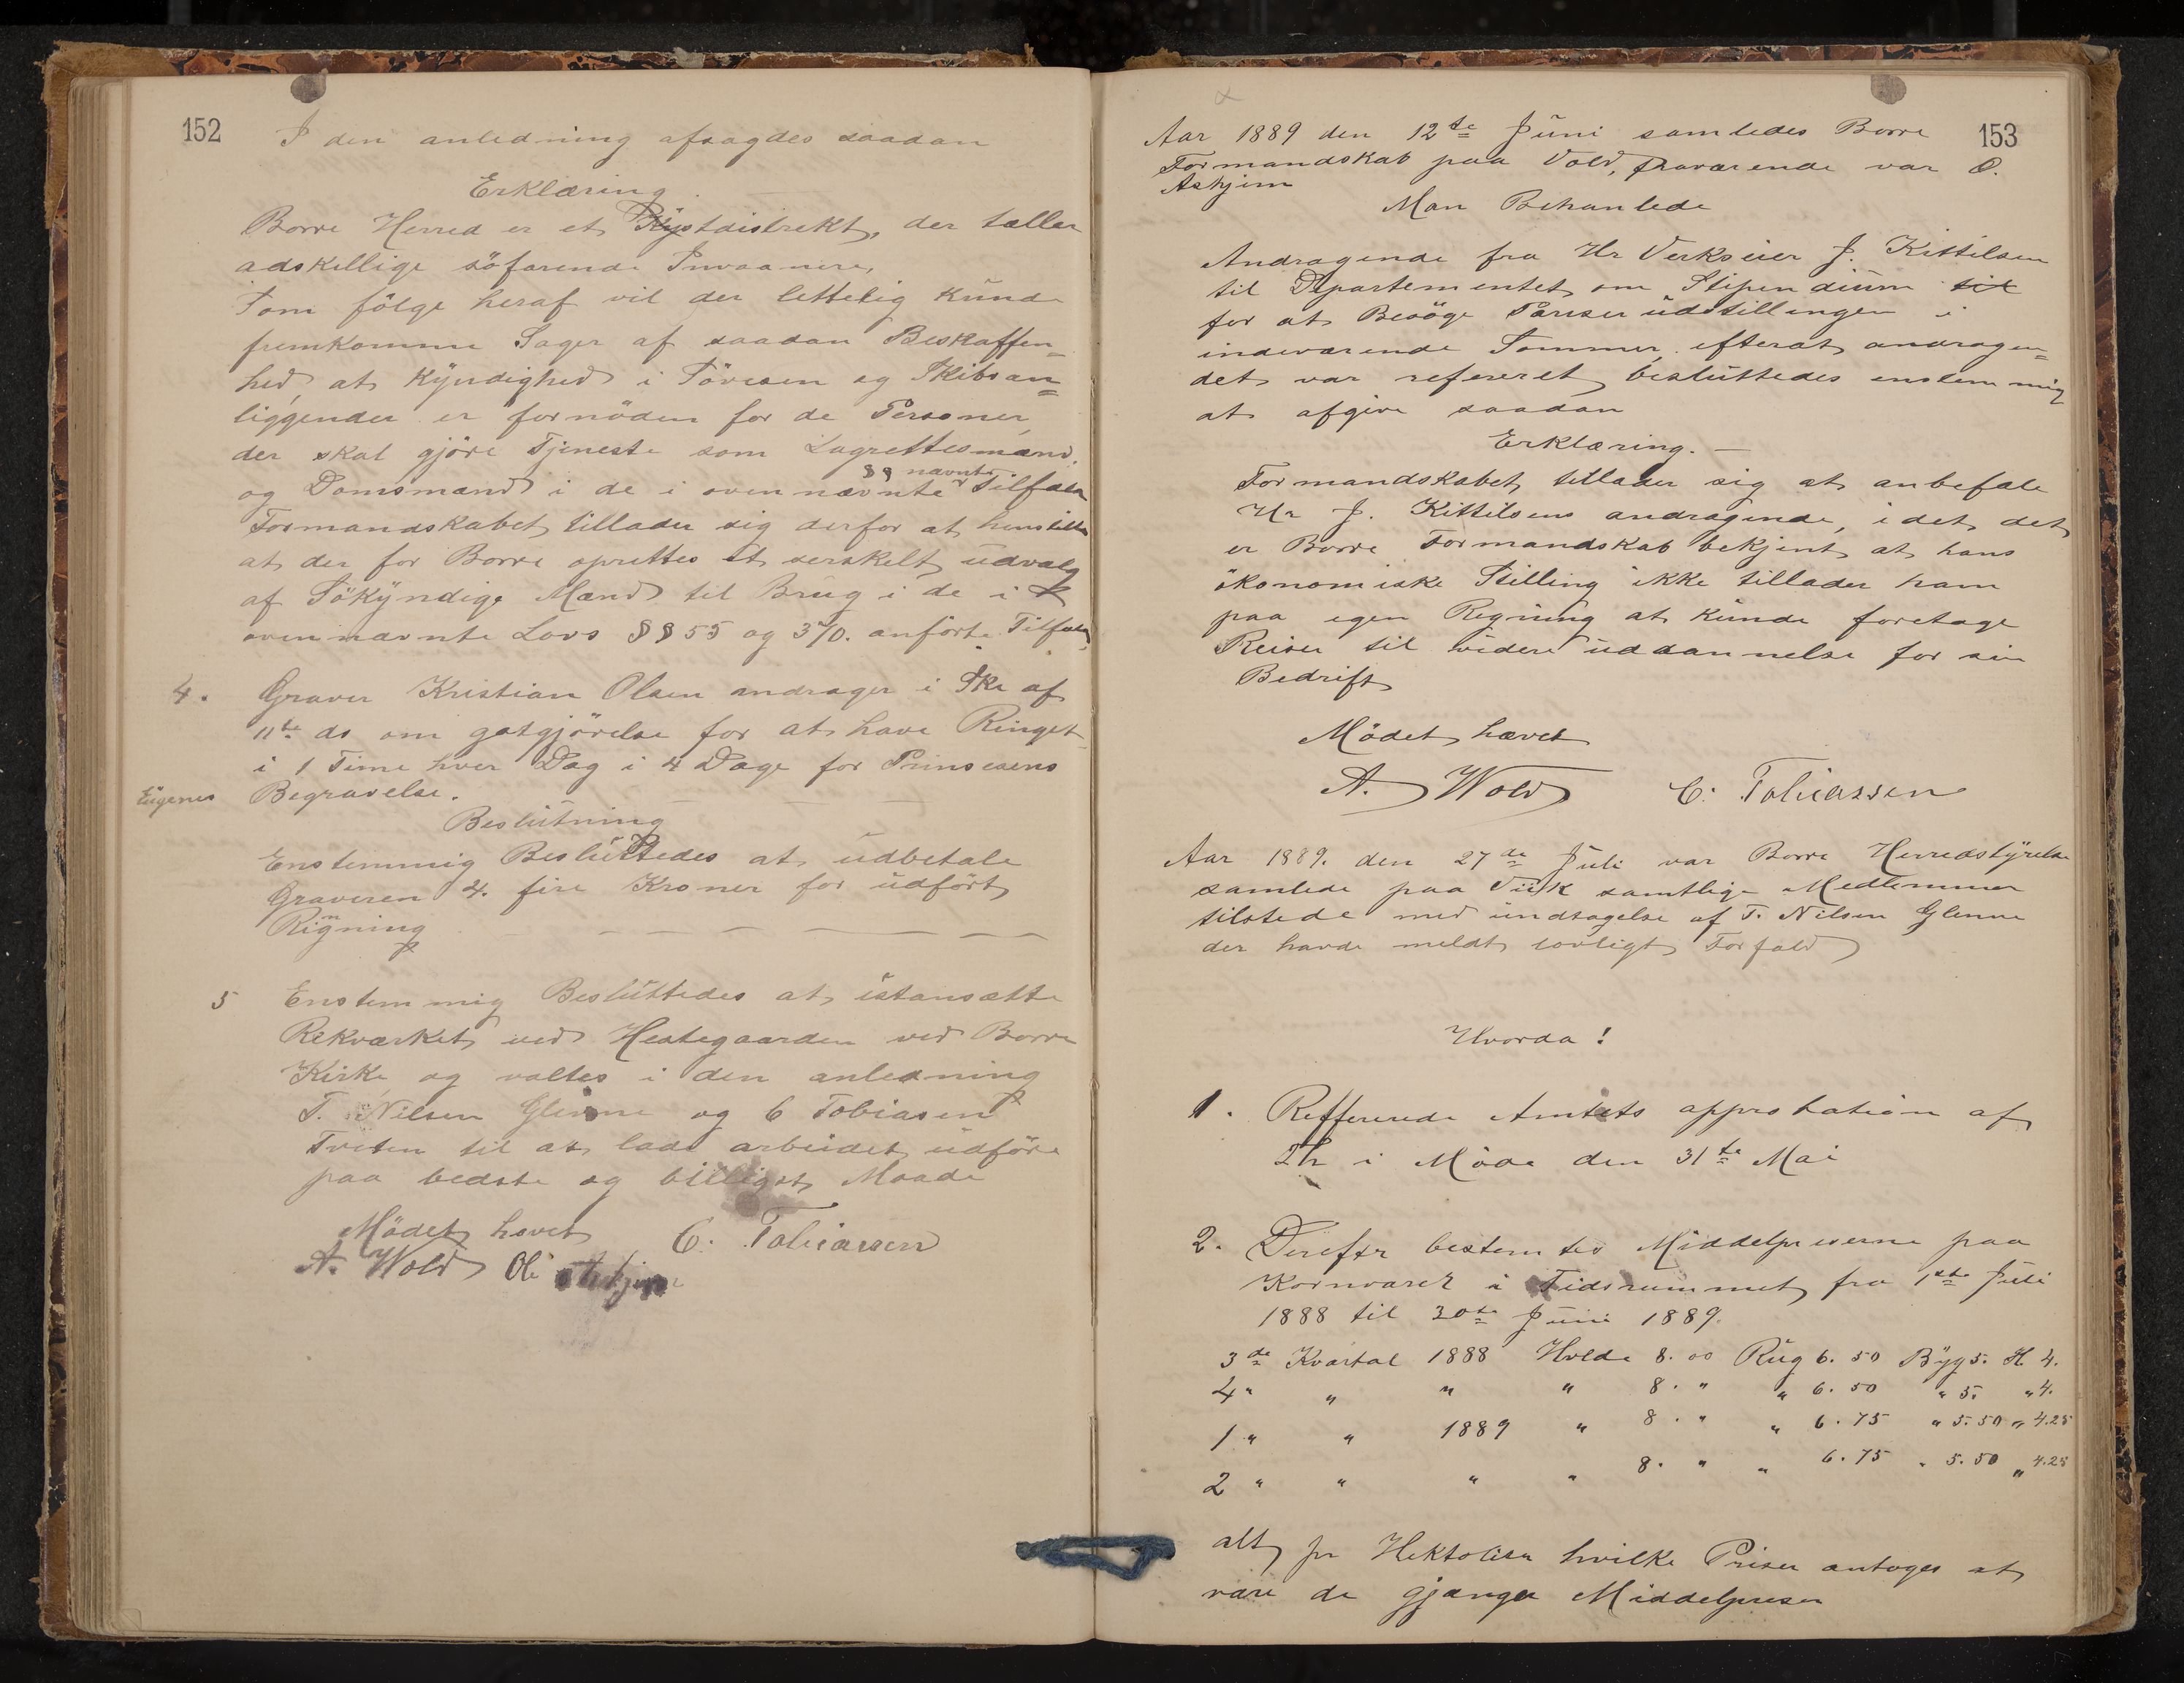 152
I den anledning afsagdes saadan
Erklæring
Borre Herred er et Kystdistrekt, der tæller
adskellige söfarende Invaanere,
Som fölge heraf vil der lettelig kunde
fremkomme Sager af saadan Beskaffen=
hed at kyndighed i Sövesen og Skibsan=
liggender er fornöden for de Personer
der skal gjöre Tjeneste som Lagrettesmænd
§§ nævnte
og Domsmænd i de i ovennævnte Tilfæler
Formandskabet tillader sig derfor at henstille
at der for Borre oprettes et serskelt udvalg
af Sökyndige Mænd til Brug i de i
ovennævnte Lovs §§ 55 og 370. anförte Tilfæler
4. Graver Kristian Olsen andrager i Skr af
11te ds om gotgjörelse for at have Ringet
i 1 Time hver Dag i 4 Dage for Prinsesens
Eugenes Begravelse.
Beslutning
Enstemmig Besluttedes at udbetale
Graveren 4. fire Kroner for udfört
Rigning
5 Enstemmig Besluttedes at istansætte
Rekværket ved Hestegaarden ved Borre
Kirke og valtes i den anledning
T. Nilsen Glenne og C Tobiasen
Tveten til at lade arbeidet udföre
paa bedste og billigst Maade
Mödet hævet C. Tobiassen
A. Wold Ole Askjem
153
Aar 1889 den 12te Juni samledes Borre
Formandskab paa Vold, fraværende var O.
Askjem
Man Behanlede
Andragende fra Hr Verkseier J. Kittilsen
til Departementet om Stipendium til
for at Besöge Pariserudstillingen i
indeværende Sommer, efterat andragen=
det var refereret besluttedes enstemmig
at afgive saadan
Erklæring.
Formandskabet tillader sig at anbefale
Hr J. Kittilsens andragende, i det det
er Borre Formandskab bekjent at hans
ökonomiske Stilling ikke tillader ham
paa egen Regning at kunde foretage
Reiser til videre uddannelse for sin
Bedrift
Mödet hævet
A. Wold C. Tobiassen
Aar 1889. den 27de Juli var Borre Herredstyrelse
samlede paa Viik samtlige Medlemmer
tilstede med undtagelse af T. Nilsen Glenne
der havde meldt lovligt Forfald
Hvorda!
1. Reffererede Amtets approbation af
i Möde den 31te Mai
2. Derefter bestemtes Middelpriserne paa
Kornvarer i Tidsrummet fra 1ste Juli
1888 til 30te Juni 1889.
3de Kvartal 1888 Hvlde 8. 00 Rug 6. 50 Byg 5. H 4.
4 " " " " 8. " " 6. 50 " 5. " 4.
1 " " 1889 " 8. " " 6. 75 " 5. 50 " 4.25
2 " " " " 8. " " 6. 75 " 5. 50 " 4.25
alt pr Hektoliter hvilke Priser antoges at
være de gjængse Middelpriser